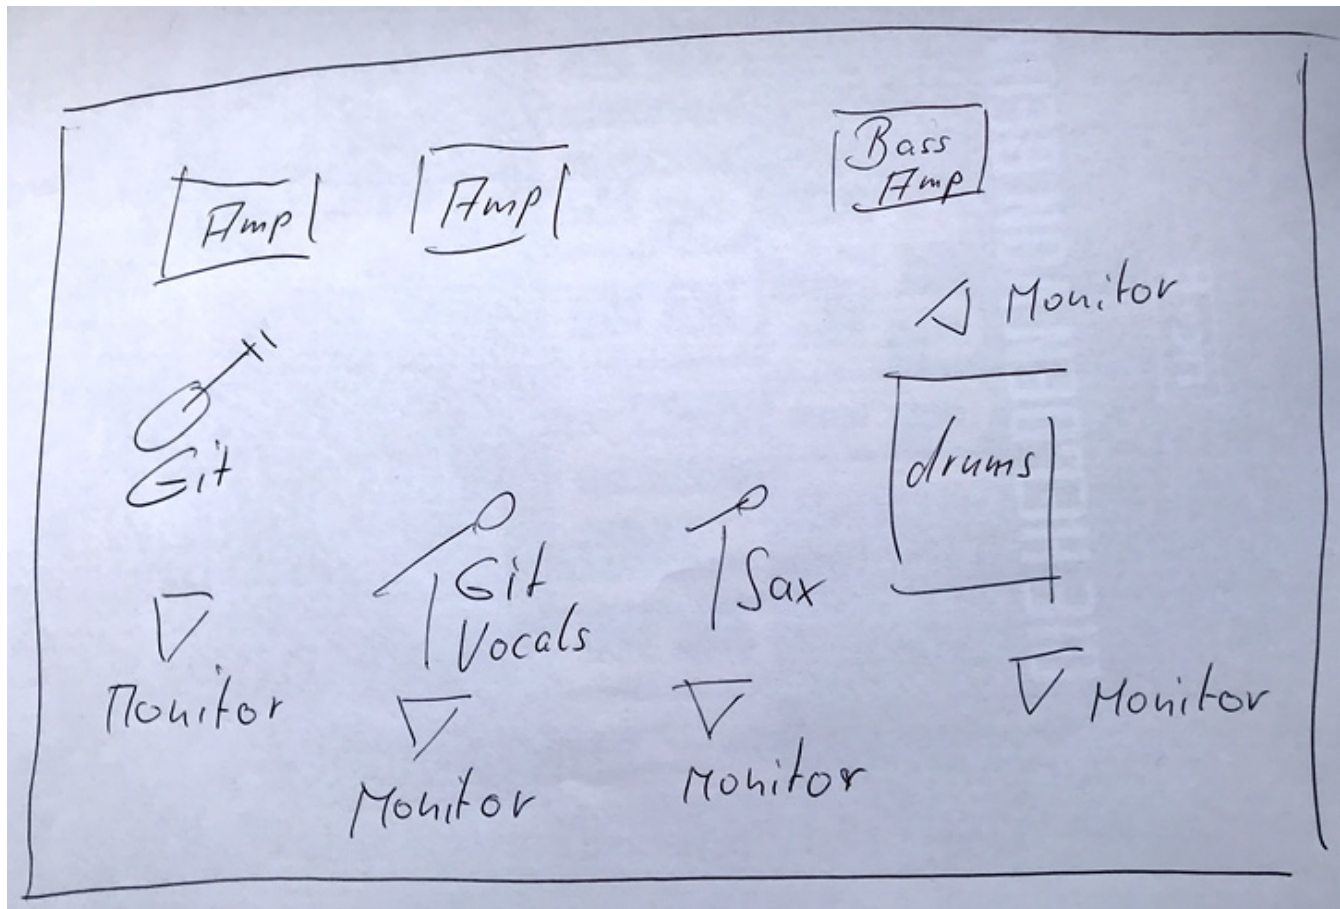 Amp
Amp
Bass
Amp
Monitor
Git
drums
Git
Vocals
Sax
Monitor
Monitor
Monitor
Monitor